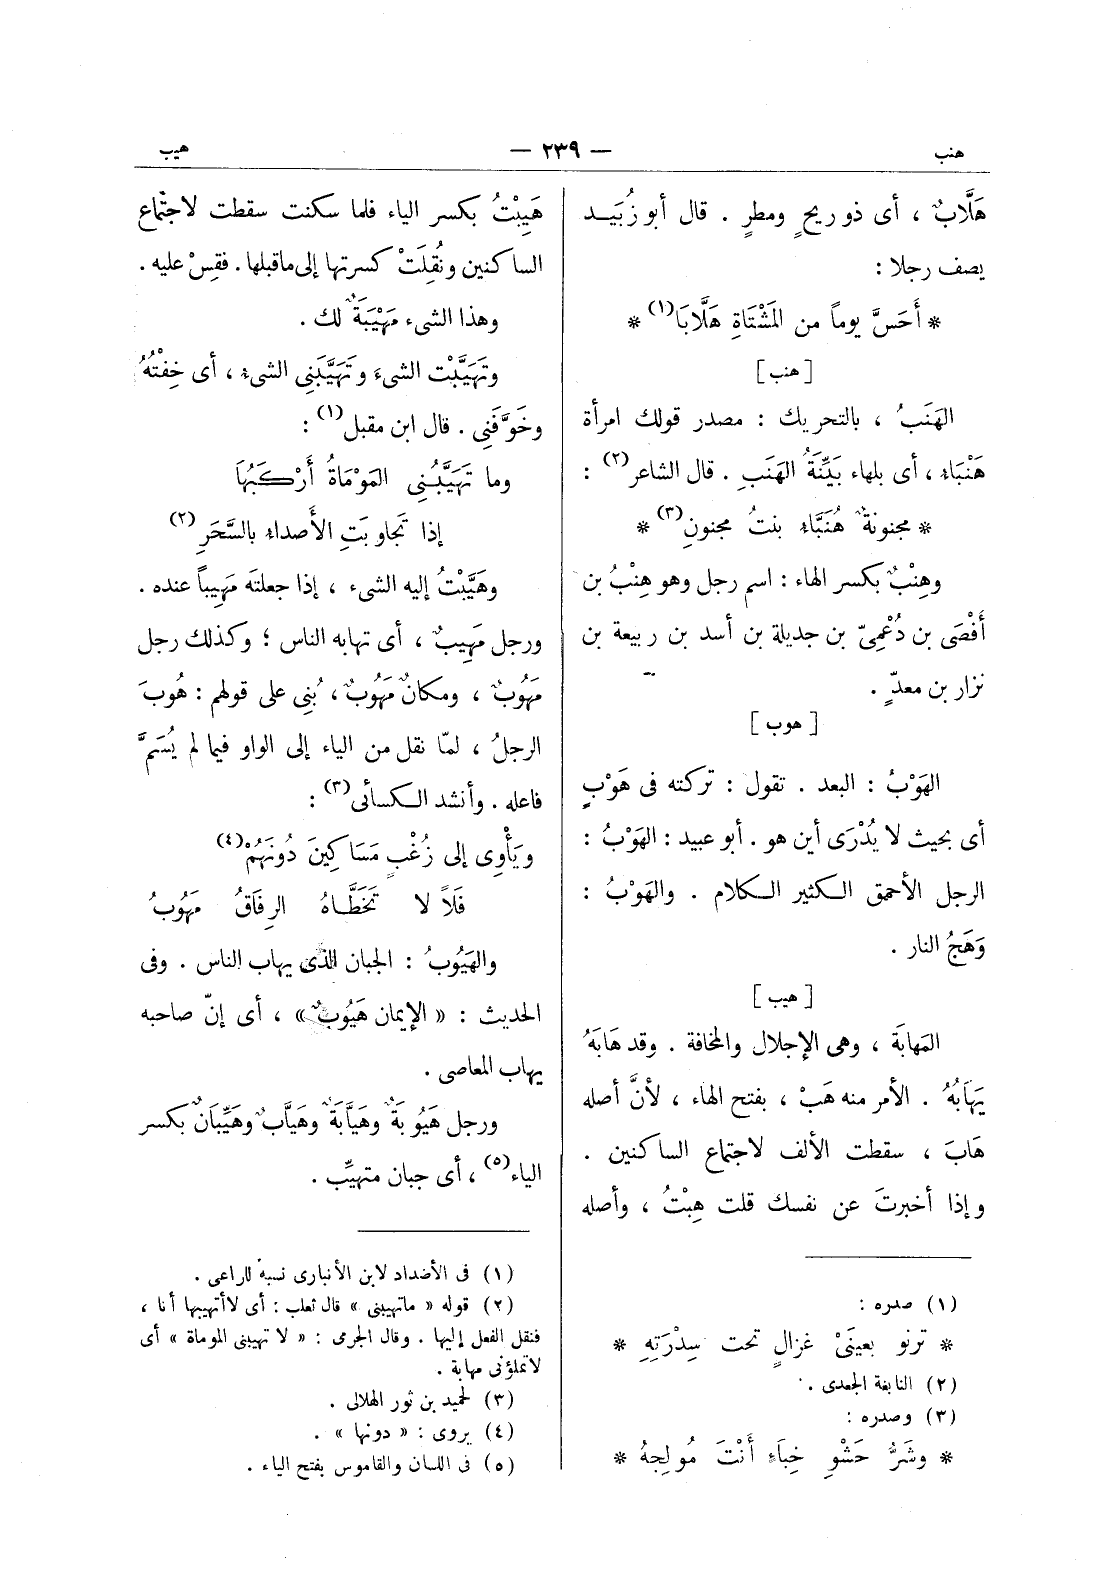 هنب
— ٢٣٩ —
هيب
هَلَّابٌ ، أى ذو ريحٍ ومطرٍ . قال أبو زُبَيد
يصف رجلا :
* أَحَسَّ يوماً من المَشْتَاةِ هَلَّابَا(١) *
[ هنب ]
الهَنَبُ ، بالتحريك : مصدر قولك امرأة
هَنْبَاء ، أى بلهاء بَيِّنَةُ الهَنَبِ . قال الشاعر(٢) :
* مجنونةٌ هُنَّبَاء بنتُ مجنونِ(٣) *
وهِنْبٌ بكسر الهاء : اسم رجل وهو هِنْبُ بن
أَفْصَى بن دُعْمِىّ بن جديلة بن أسد بن ربيعة بن
نزار بن معدّ .
[ هوب ]
الهَوْبُ : البعد . تقول : تركته فى هَوْبٍ
أى بحيث لا يُدْرَى أين هو . أبو عبيد : الهَوْبُ :
الرجل الأحمق الكثير الكلام . والهَوْبُ :
وَهَجُ النار .
[ هيب ]
المَهابَة ، وهى الإجلال والمخافة . وقد هَابَهُ
يَهَابُهُ . الأمر منه هَبْ ، بفتح الهاء ، لأنَّ أصله
هَابَ ، سقطت الألف لاجتماع الساكنين .
وإذا أخبرتَ عن نفسك قلت هِبْتُ ، وأصله
(١) صدره :
* ترنو بعينَىْ غزالٍ تحت سِدْرَتِهِ *
(٢) النابغة الجعدى .
(٣) وصدره :
* وشَرُّ حَشْوِ خِبَاء أَنْتَ مُولِجهُ *
هَيِبْتُ بكسر الياء فلما سكنت سقطت لاجتماع
الساكنين ونُقِلَتْ كسرتها إلى ماقبلها . فقِسْ عليه .
وهذا الشىء مَهْيَبَةٌ لك .
وتَهَيَّبْت الشىءَ وتَهَيَّبَنِى الشىء ، أى خِفْتُهُ
وخَوَّفَنِى . قال ابن مقبل(١) :
وما تَهَيَّبُنِى المَوْمَاةُ أَرْكَبُهَا
إذا تَجاوبَتِ الأصداء بالسَّحَرِ(٢)
وهَيَّبْتُ إليه الشىء ، إذا جعلتَه مَهِيباً عنده .
ورجل مَهِيبٌ ، أى تهابه الناس ؛ وكذلك رجل
مَهُوبٌ ، ومكانٌ مَهُوبٌ ، بُنِى على قولهم : هُوبَ
الرجلُ ، لمّا نقل من الياء إلى الواو فيما لم يُسَمَّ
فاعله . وأنشد الكسائى(٣) :
ويَأْوِى إلى زُغْبٍ مَسَاكِينَ دُونَهُمْ(٤)
فَلاً لا تَخَطَّاهُ الرِفَاقُ مَهُوبُ
والهَيُوبُ : الجبان الذى يهاب الناس . وفى
الحديث : « الإيمان هَيُوبٌ » ، أى إنّ صاحبه
يهاب المعاصى .
ورجل هَيُوبَةٌ وهَيَّابَةٌ وهَيَّابٌ وهَيِّبَانٌ بكسر
الياء(٥) ، أى جبان متهيِّب .
(١) فى الأضداد لابن الأنبارى نسبة للراعى .
(٢) قوله « ماتهيبنى » قال ثعلب : أى لاأتهيبها أنا ،
فنقل الفعل إليها . وقال الجرمى : « لا تهيبنى الموماة » أى
لاتملؤنى مهابة .
(٣) لحميد بن ثور الهلالى .
(٤) يروى : « دونها » .
(٥) فى اللسان والقاموس بفتح الياء .